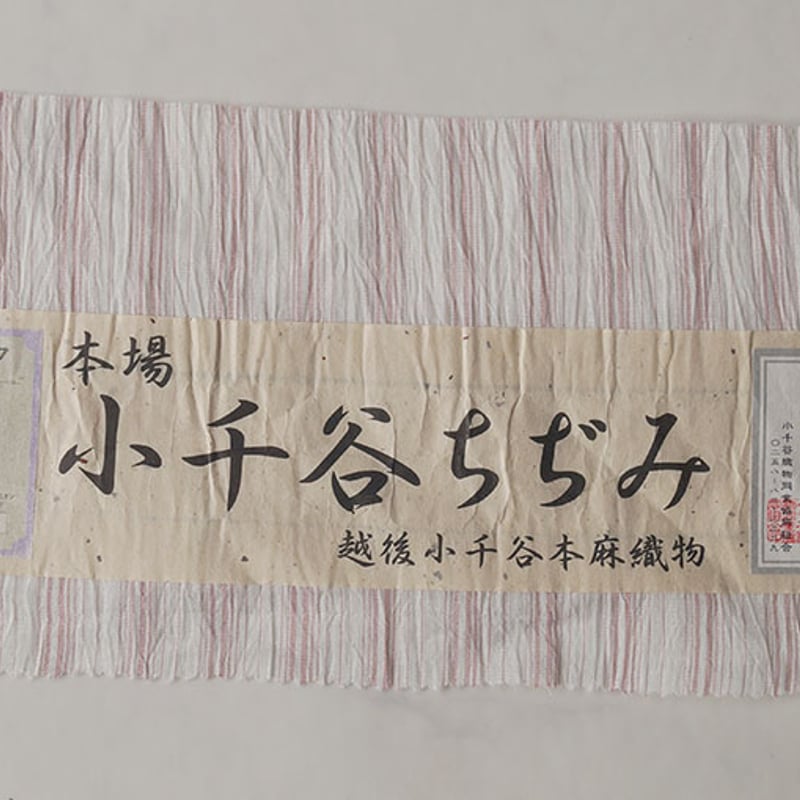 本場
小千谷ちぢみ
越後小千谷本麻織物
小千谷織物同業協同組合